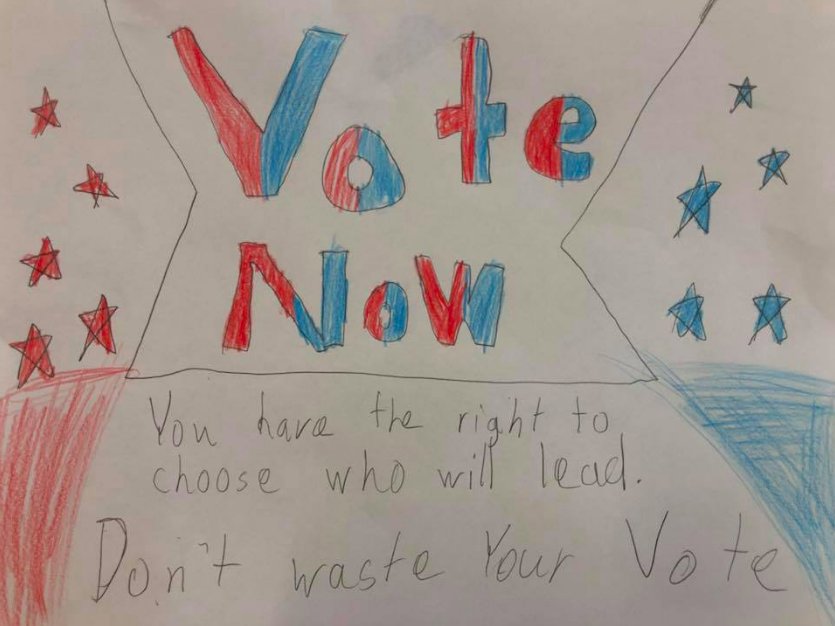 Vote
Now
You have the right to
choose who will lead.
Don't waste Your Vote